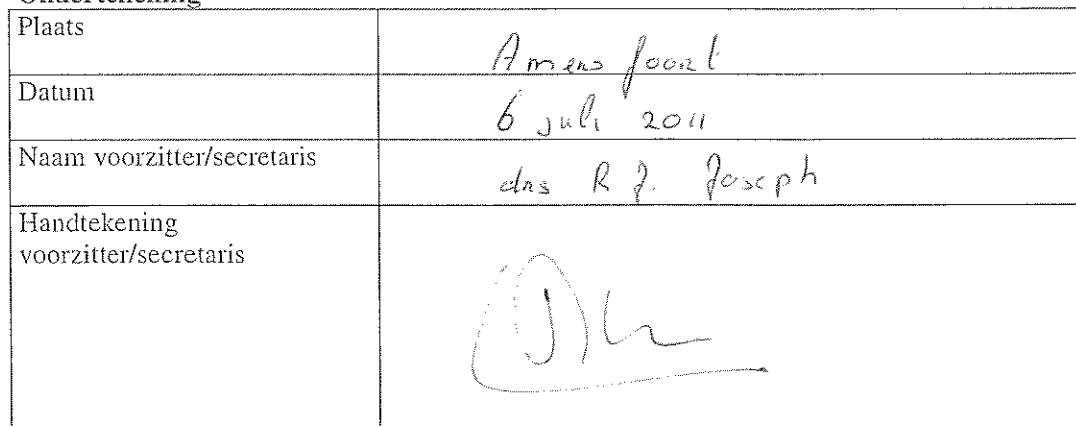 Ondertekening
Plaats Amersfoort
Datum 6 juli 2011
Naam voorzitter/secretaris drs R J. Joseph
Handtekening
voorzitter/secretaris